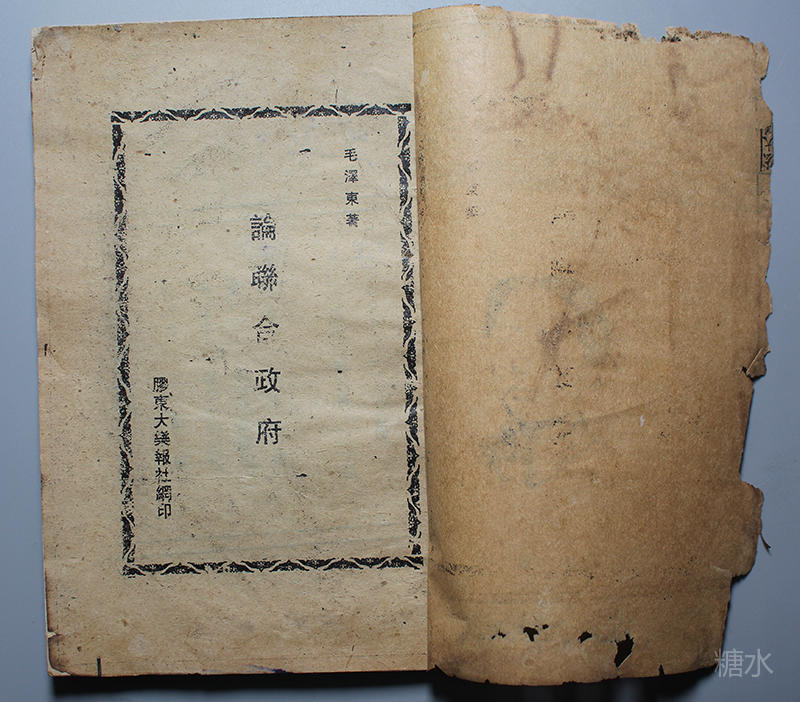 毛澤東著
論聯合政府
膠東大衆報社編印
糖水